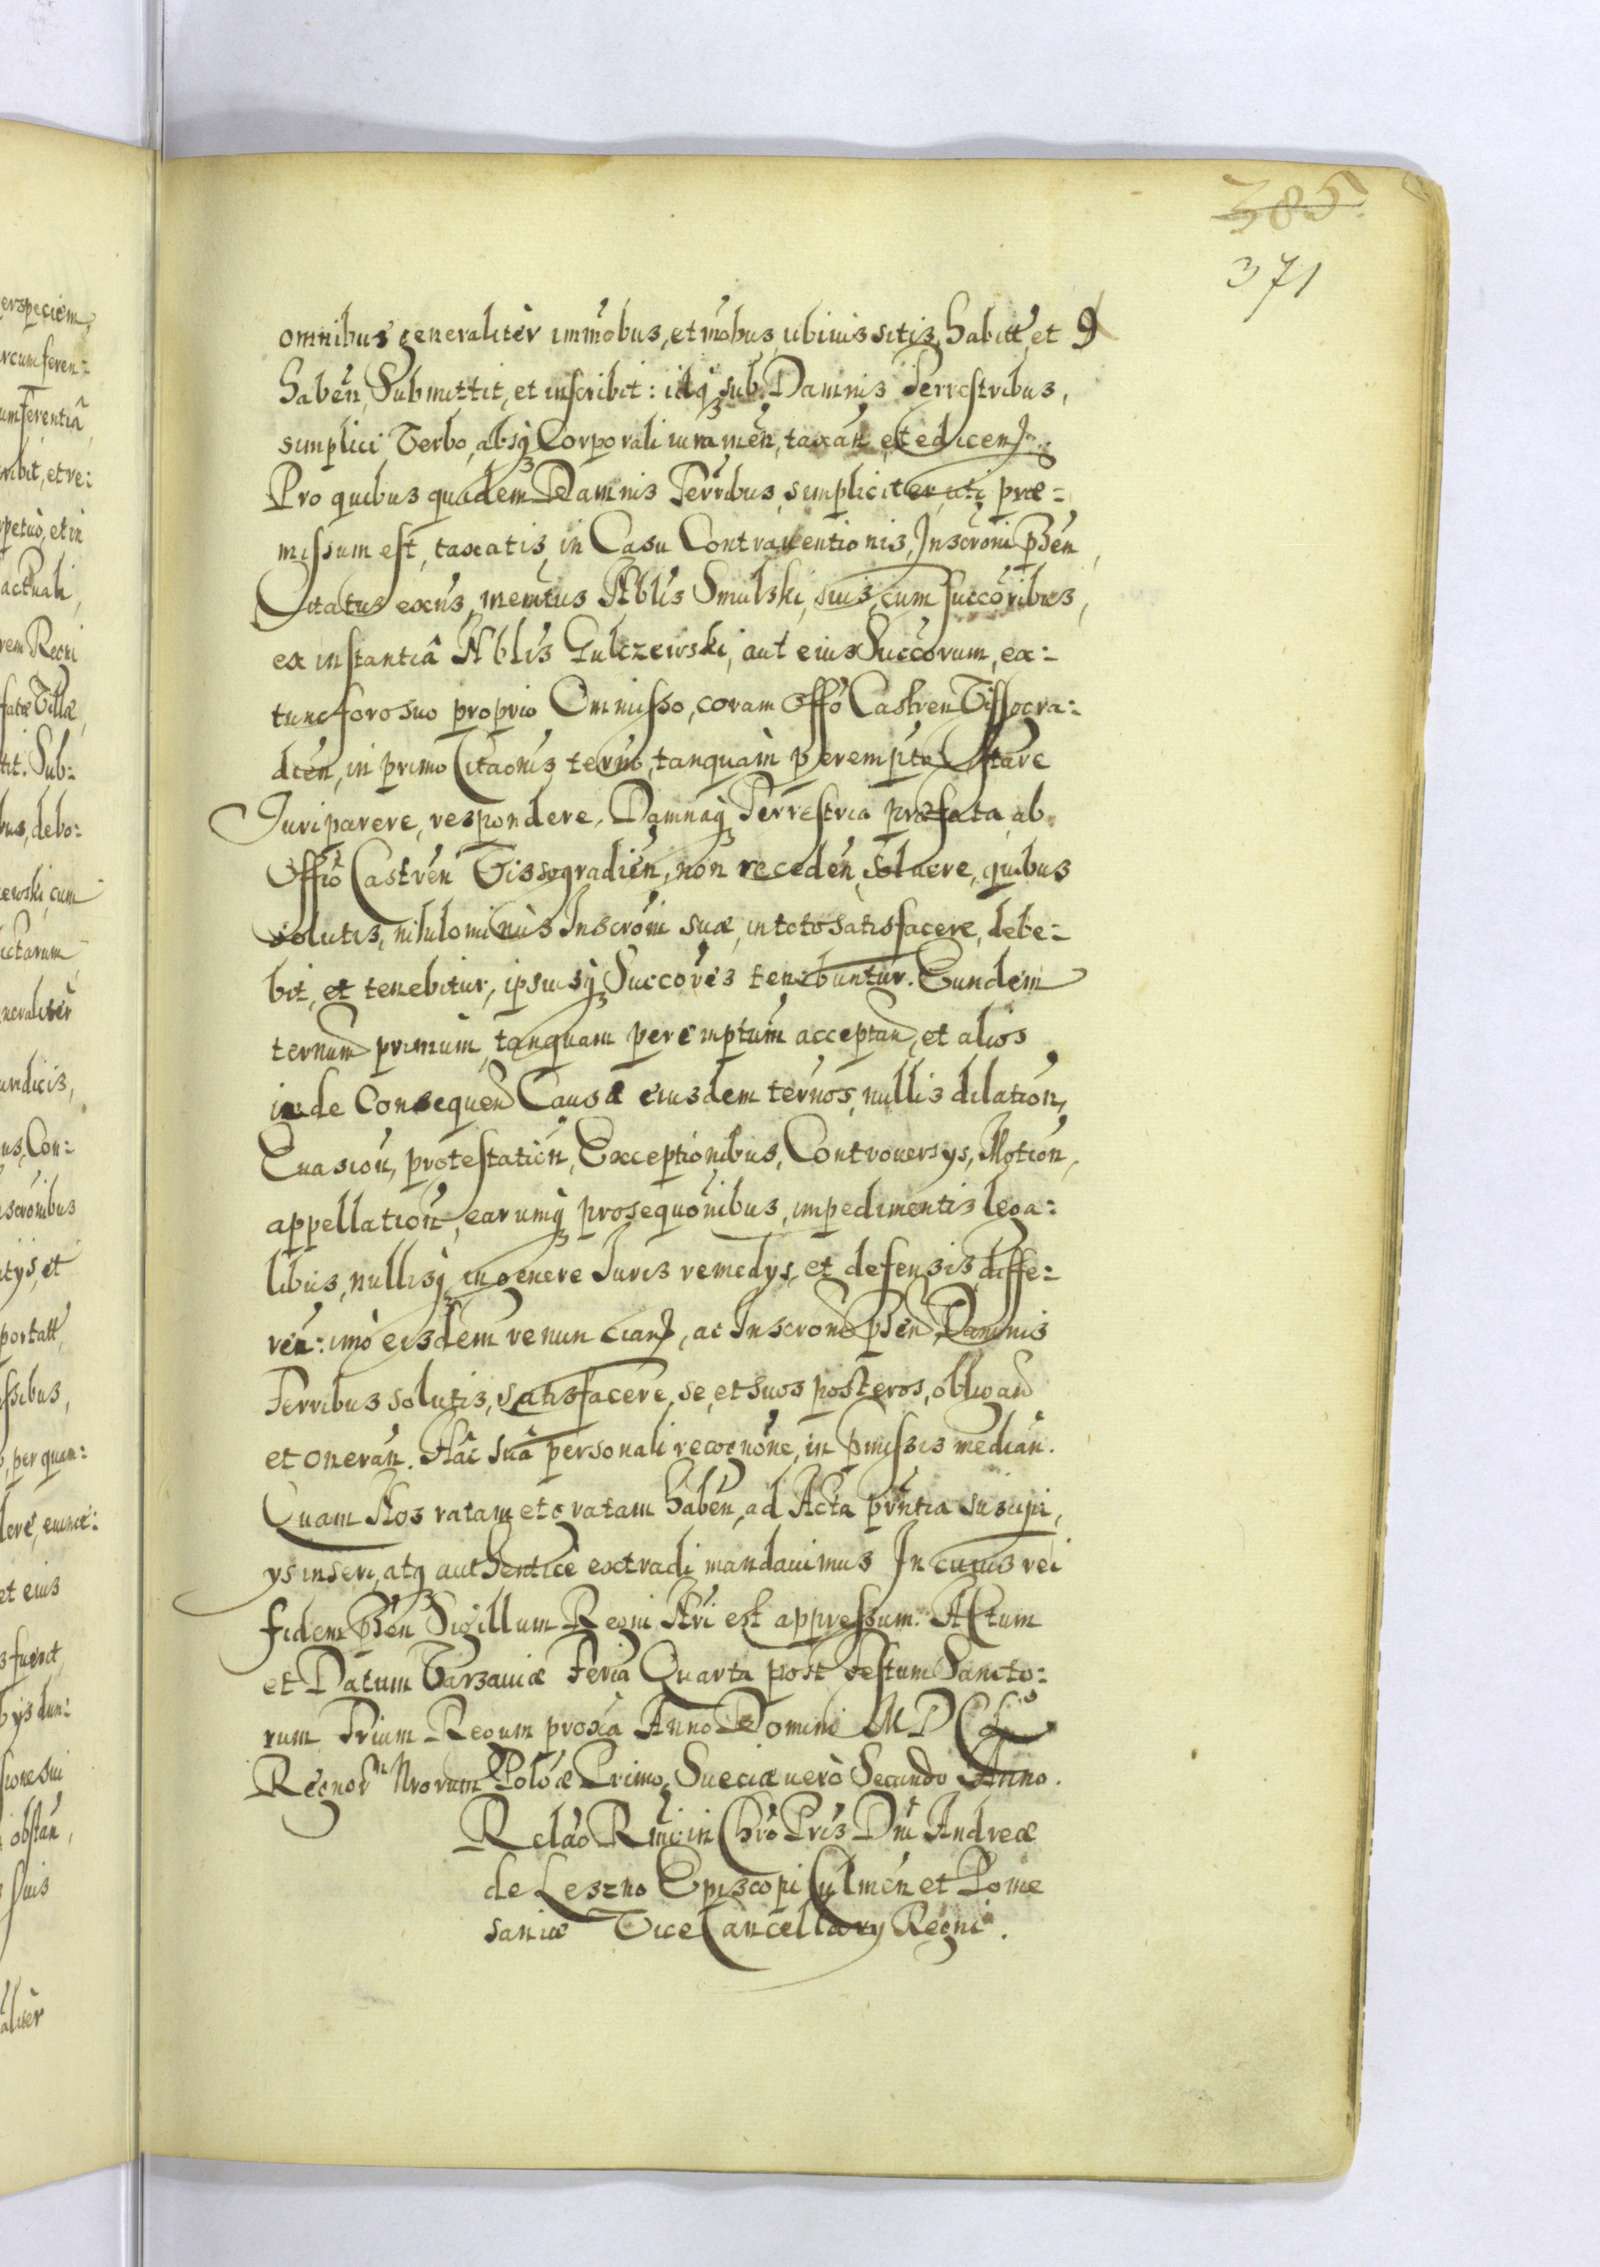 385.
371
omnibus generalitèr immobus, et mobus, ubiuis sitis, habitt, et
habén, Submittit, et inscribit: idq́ sub Damnis Terrestribus,
simplici Verbo, absq́ Corporali iuramén, taxań, et edicen
Pro quibus quidem Damnis Terribus, simpliciter, uti præ=
missum est, taxatis, in Casu Contrauentionis, Inscroni Phén,
Citatus exńs, memtus Nblis Smulski, suis cum succoribus,
ex instantiâ Nblis Gulczewski, aut eius Succorum, ex=
tunc foro suo proprio Omnisso, coram Offo Castren Vissogra=
dień, in primo Citaonis terno, tanquàm perempto Stare
Iuri parere, respondere, Damnaq́ Terrestria præfata, ab
Offio Castrén Vissogradién, non recedén, soluere, quibus
solutis, nihilominùs Inscroni suæ, in toto satisfacere, debe=
bit, et tenebitur, ipsiusq́ Succores tenebuntur. Eundem
ternum primùm, tanquam peremptum acceptan, et alios
inde Consequen Causæ eiusdem ternos, nullis dilation,
Euasion, protestation, Exceptionibus, Controuersys, Motion,
appellation, earumq́ prosequonibus, impedimentis lega=
libus, nullisq́ in genere Iuris remedys, et defensis, diffe=
ren: imò eisdem renuncian, ac Inscroni Phen Damnis
Terribus solutis, satisfacere, se, et suos posteros, obligan
et onerán. Hâc suâ personali recognone, in pmissis medián.
Quam Nos ratam et gratam habén, ad Acta pntia suscipi,
ys inseri, atq́ authenticè extradi mandauimus In cuius rei
fidem Phén Sigillum Regni Nri est appressum. Actum
et Datum Varsauiæ Feria Quarta post Festum Sancto=
rum Trium Regum proxa Anno Domini MDCL
Regnor Nrorum Poloæ Primo, Sueciæ uerò Secundo Anno.
Relao Rmi in Chro Pris Dni Andreæ
de Leszno Episcopi Culmén et Pome
saniæ Vice Cancellary Regni.
erspeciem,
rcumferen=
umferentiâ
ribit, et re=
rpetuò, et in
actuali,
rem Regni
fatæ Villæ,
tit. Sub=
bus, debo=
zewski, cum
ictarum
neralitèr
uridicis,
us, Con=
scronibus
itys, et
portatt,
ssibus,
per quam=
et eius
s fuerit,
sione sui
obstań,
suis
alitèr